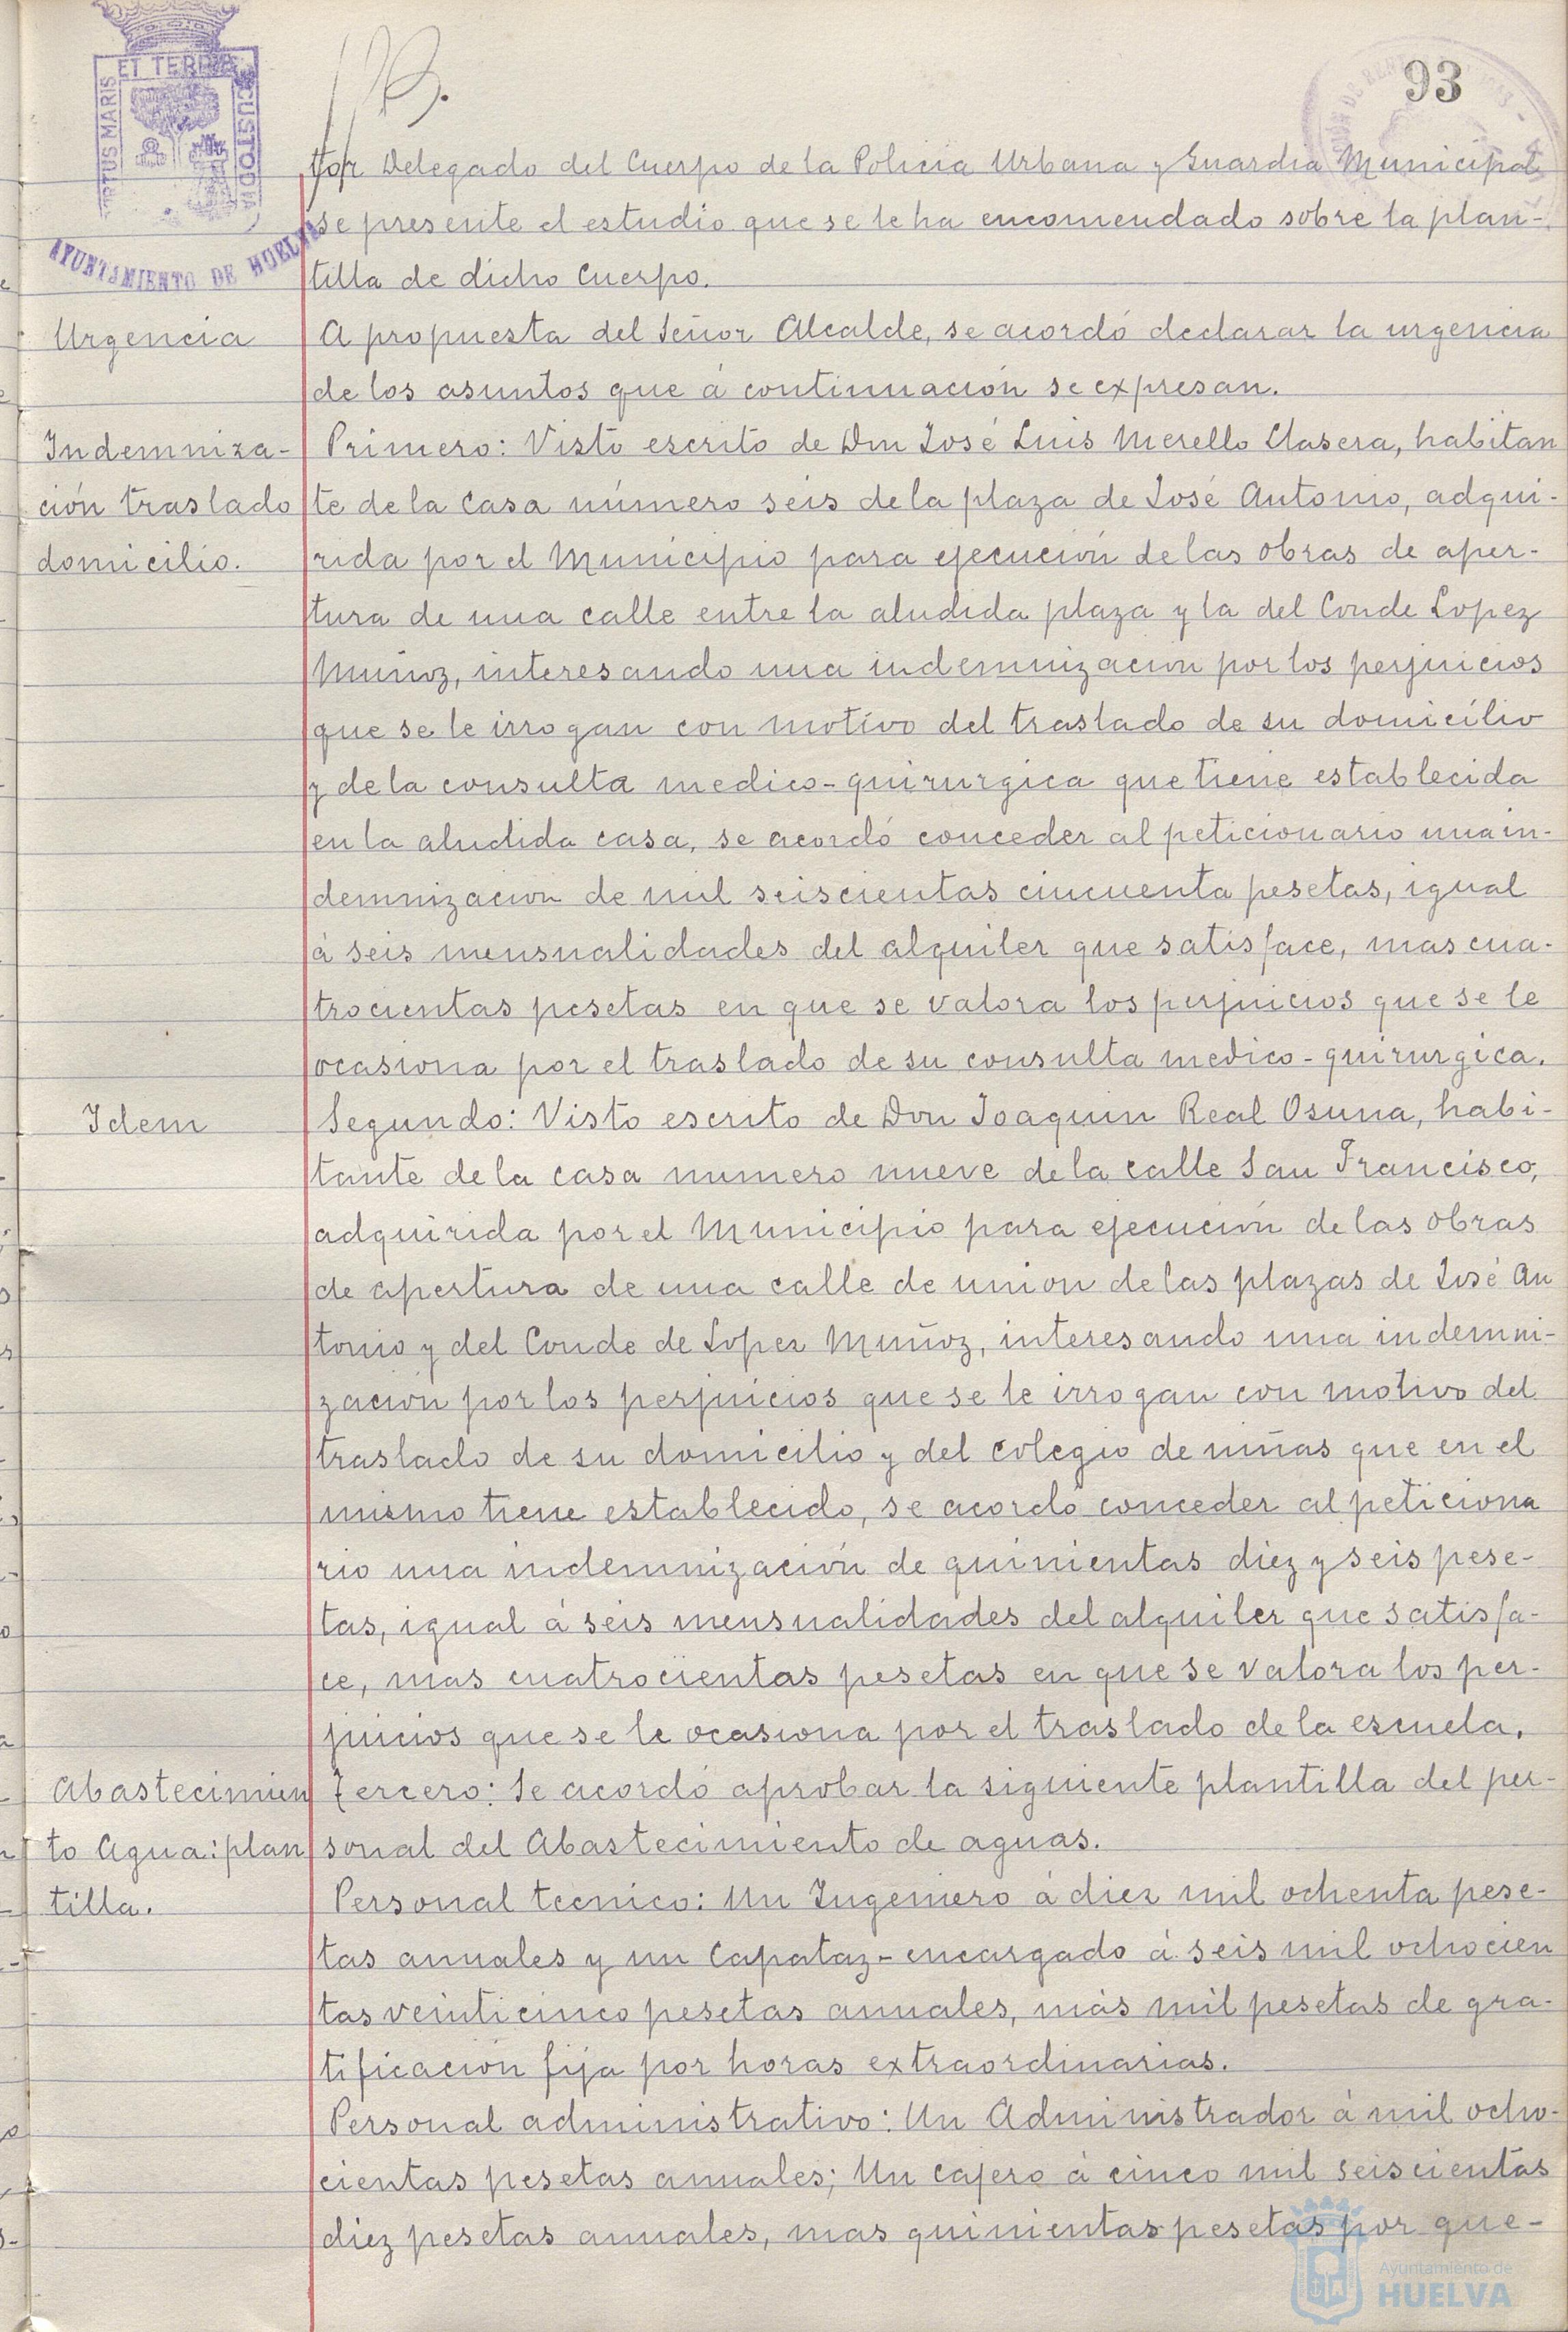 93
ET TERRÆ
CUSTODIA
AYUNTAMIENTO DE HUELVA
tor Delegado del Cuerpo de la Policia Urbana y Guardia Municipal
se presente el estudio que se le ha encomendado sobre la plan-
tilla de dicho Cuerpo.
Urgencia
A propuesta del Señor Alcalde, se acordó declarar la urgencia
de los asuntos que á continuación se expresan.
Indemniza-
ción traslado
domicilio.
Primero: Visto escrito de Don José Luis Merello Llasera, habitan
te de la casa número seis de la plaza de José Antonio, adqui-
rida por el Municipio para ejecución de las obras de aper-
tura de una calle entre la aludida plaza y la del Conde Lopez
Muñoz, interesando una indemnizacion por los perjuicios
que se le irrogan con motivo del traslado de su domicilio
y de la consulta medico-quirurgica que tiene establecida
en la aludida casa, se acordó conceder al peticionario una in-
demnizacion de mil seiscientas cincuenta pesetas, igual
á seis mensualidades del alquiler que satisface, mas cua-
trocientas pesetas en que se valora los perjuicios que se le
ocasiona por el traslado de su consulta medico-quirurgica.
Idem
Segundo: Visto escrito de Don Joaquin Real Osuna, habi-
tante de la casa numero nueve de la calle San Francisco,
adquirida por el Municipio para ejecución de las obras
de apertura de una calle de union de las plazas de José An
tonio y del Conde de Lopez Muñoz, interesando una indemni-
zación por los perjuicios que se le irrogan con motivo del
traslado de su domicilio y del colegio de niñas que en el
mismo tiene establecido, se acordó conceder al peticiona
rio una indemnización de quinientas diez y seis pese-
tas, igual á seis mensualidades del alquiler que satisfa-
ce, mas cuatrocientas pesetas en que se valora los per-
juicios que se le ocasiona por el traslado de la escuela.
Abastecimien
to Agua: plan
tilla.
Tercero: Se acordó aprobar la siguiente plantilla del per-
sonal del Abastecimiento de aguas.
Personal tecnico: Un Ingeniero á diez mil ochenta pese-
tas anuales y un Capataz-encargado á seis mil ochocien
tas veinticinco pesetas anuales, más mil pesetas de gra-
tificación fija por horas extraordinarias.
Personal administrativo: Un Administrador á mil ocho-
cientas pesetas anuales; Un cajero á cinco mil seiscientas
diez pesetas anuales, mas quinientas pesetas por que-
Ayuntamiento de
HUELVA